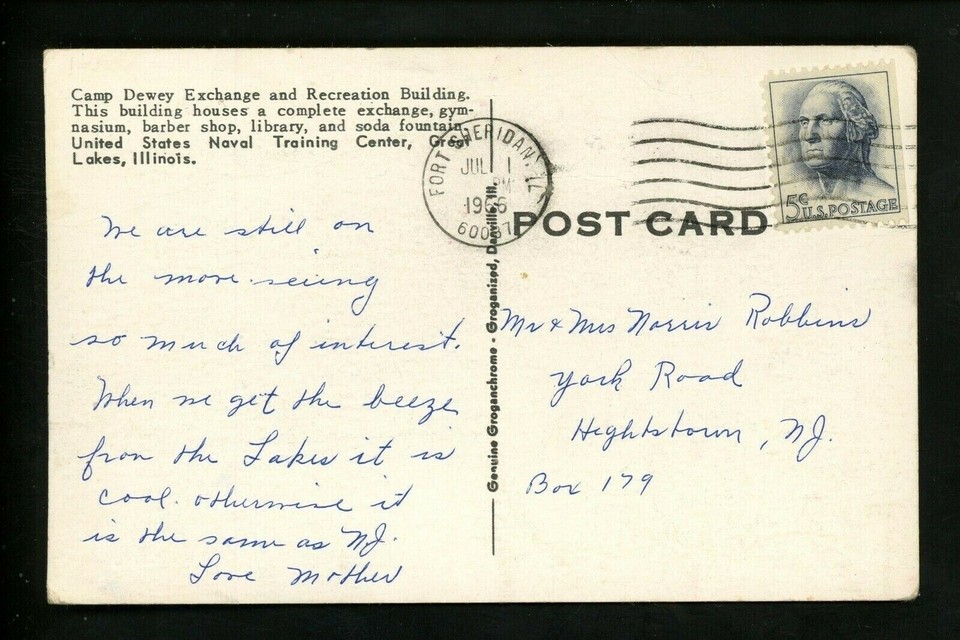 Camp Dewey Exchange and Recreation Building.
This building houses a complete exchange, gym-
nasium, barber shop, library, and soda fountain.
United States Naval Training Center, Great
Lakes, Illinois.
FORT SHERIDAN, IL
JUL 1
PM
1966
60037
5¢ U.S. POSTAGE
POST CARD
Genuine Groganchrome - Groganized, Danville, Ill.
We are still on
the move. seeing
so much of interest.
When we get the beeze
from the Lakes it is
cool. otherwise it
is the same as NJ.
Love Mother
Mr & Mrs Norris Robbins
York Road
Hightstown, NJ.
Box 179